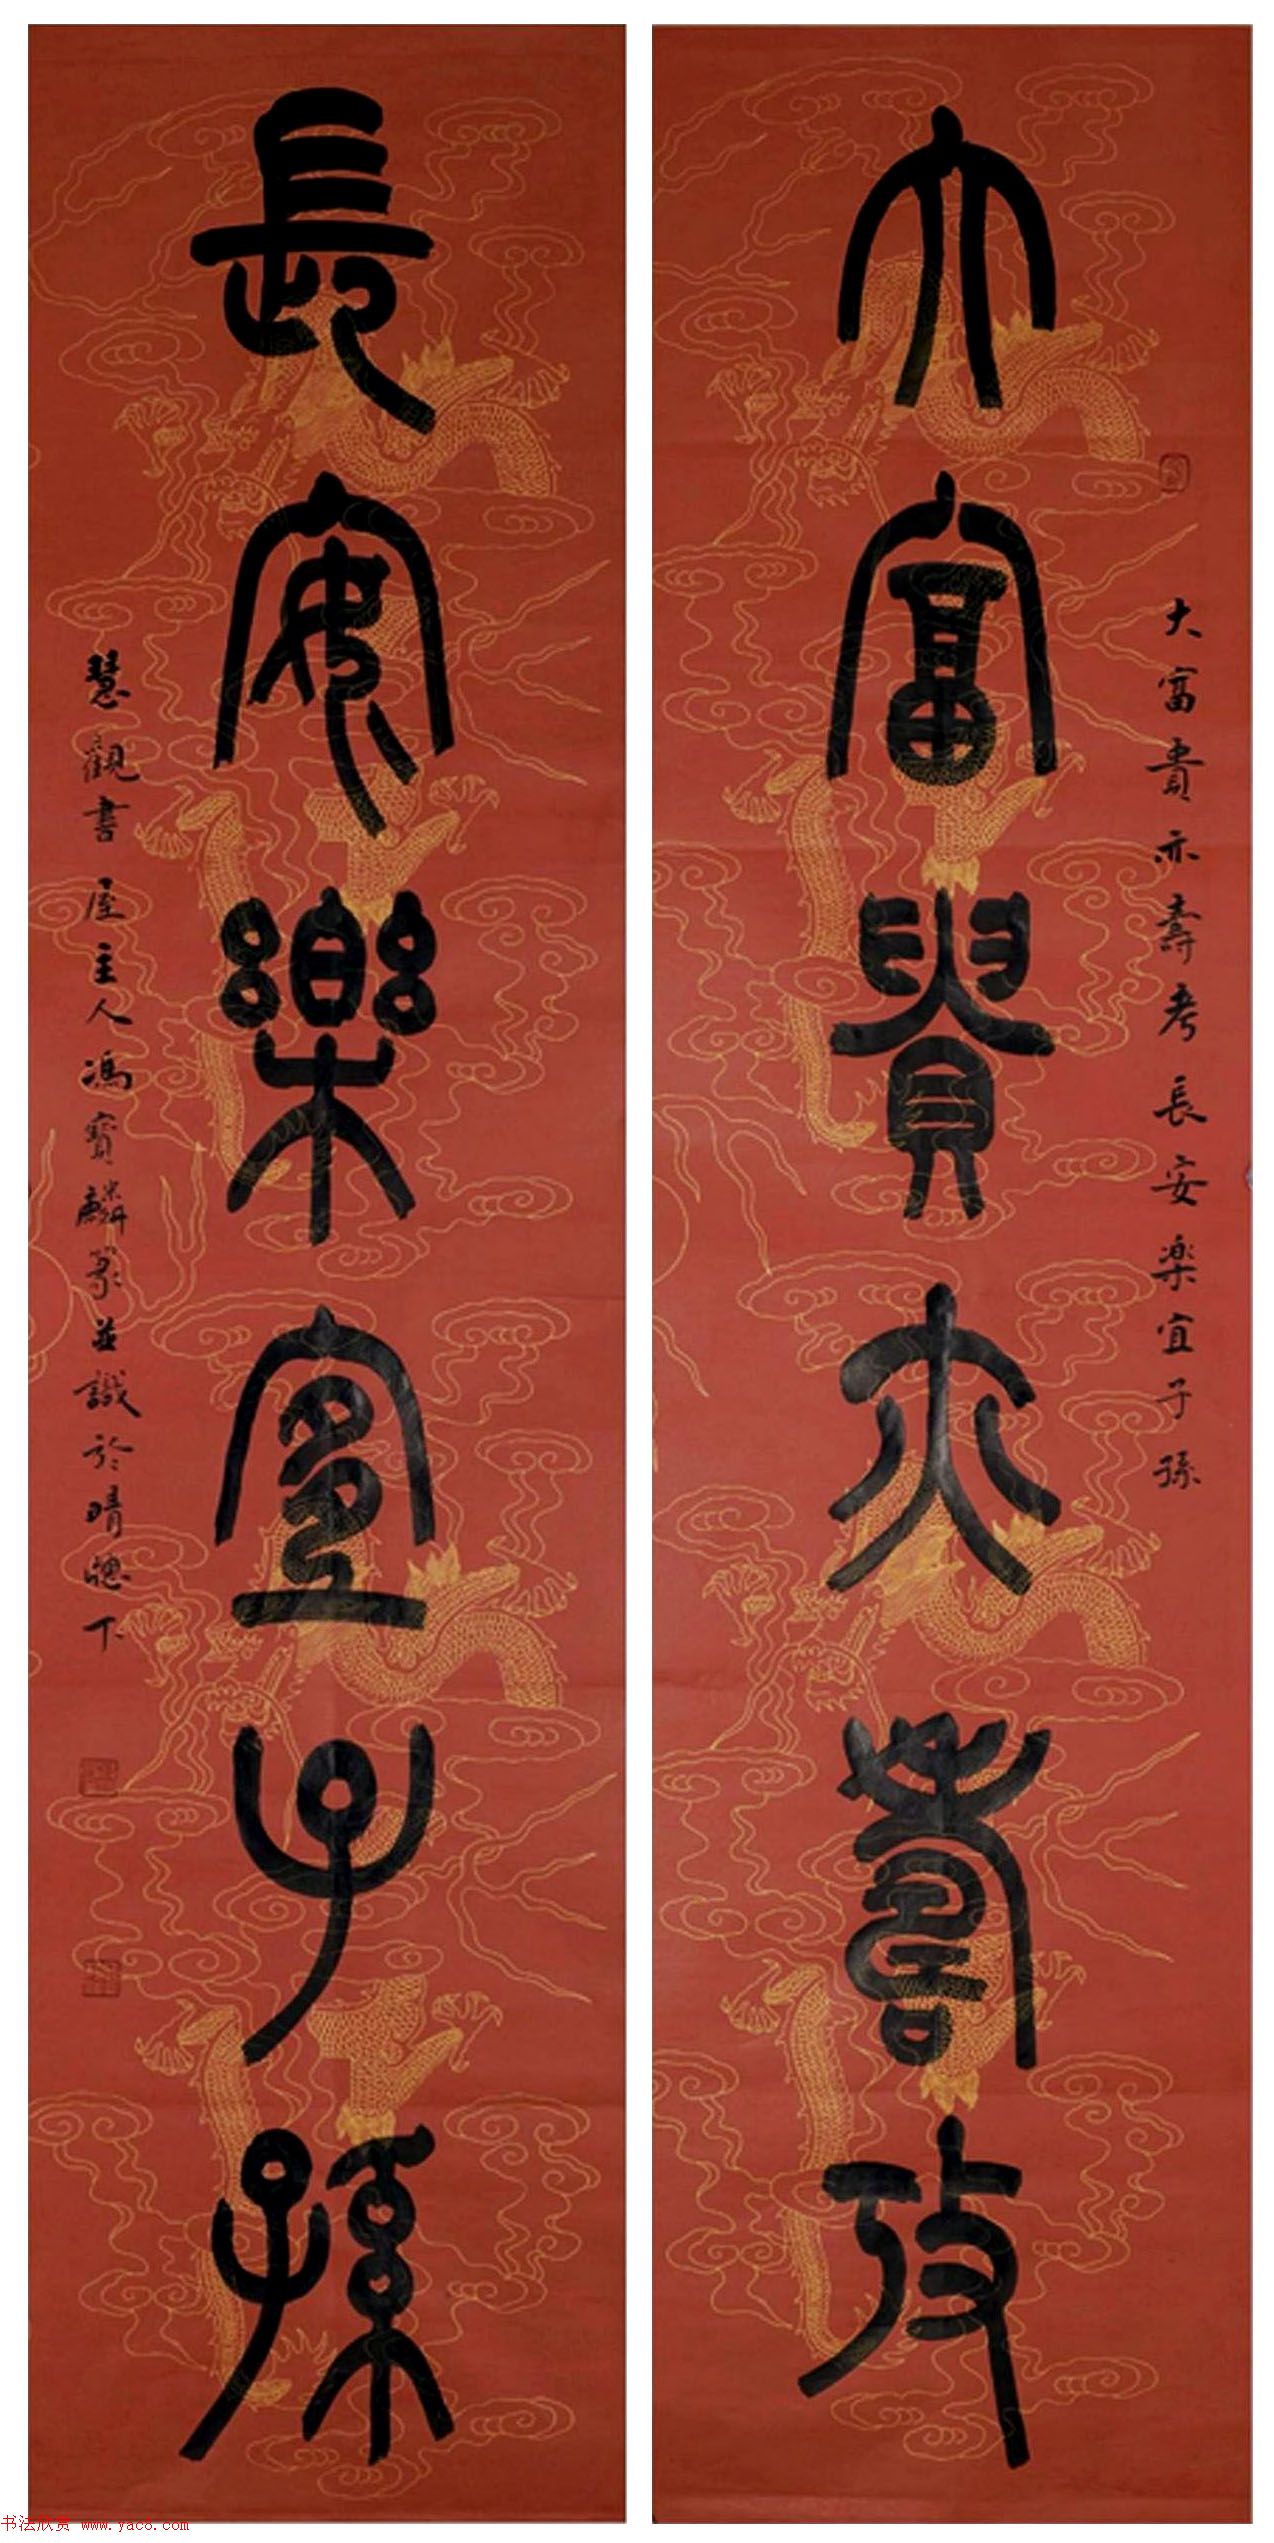 大富貴亦壽考
大富貴亦壽考長安樂宜子孫
長安樂宜子孫
慧觀書屋主人馮寶麟篆並識於晴窗下
书法欣赏 www.yac8.com